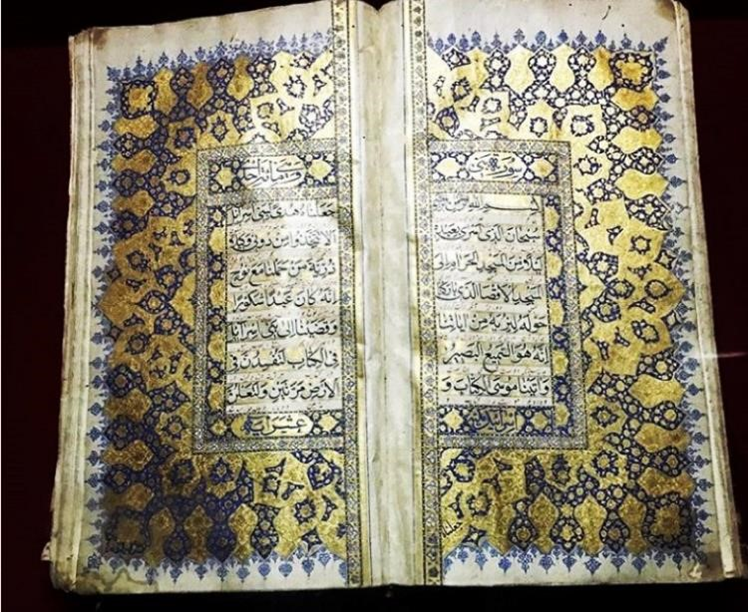 سورة بني
بسم الله الرحمن الرحيم
سبحان الذي اسرى بعبده
ليلا من المسجد الحرام الى
المسجد الاقصا الذي باركنا
حوله لنريه من اياتنا
انه هو السميع البصير
و اتينا موسى الكتاب و
اسرائيل
مائة احد
جعلناه هدى لبني اسرائيل
الا تتخذوا من دوني وكيلا
ذرية من حملنا مع نوح
انه كان عبدا شكورا
وقضينا الى بني اسرائيل
في الكتاب لتفسدن في
الارض مرتين ولتعلن
عشر آية